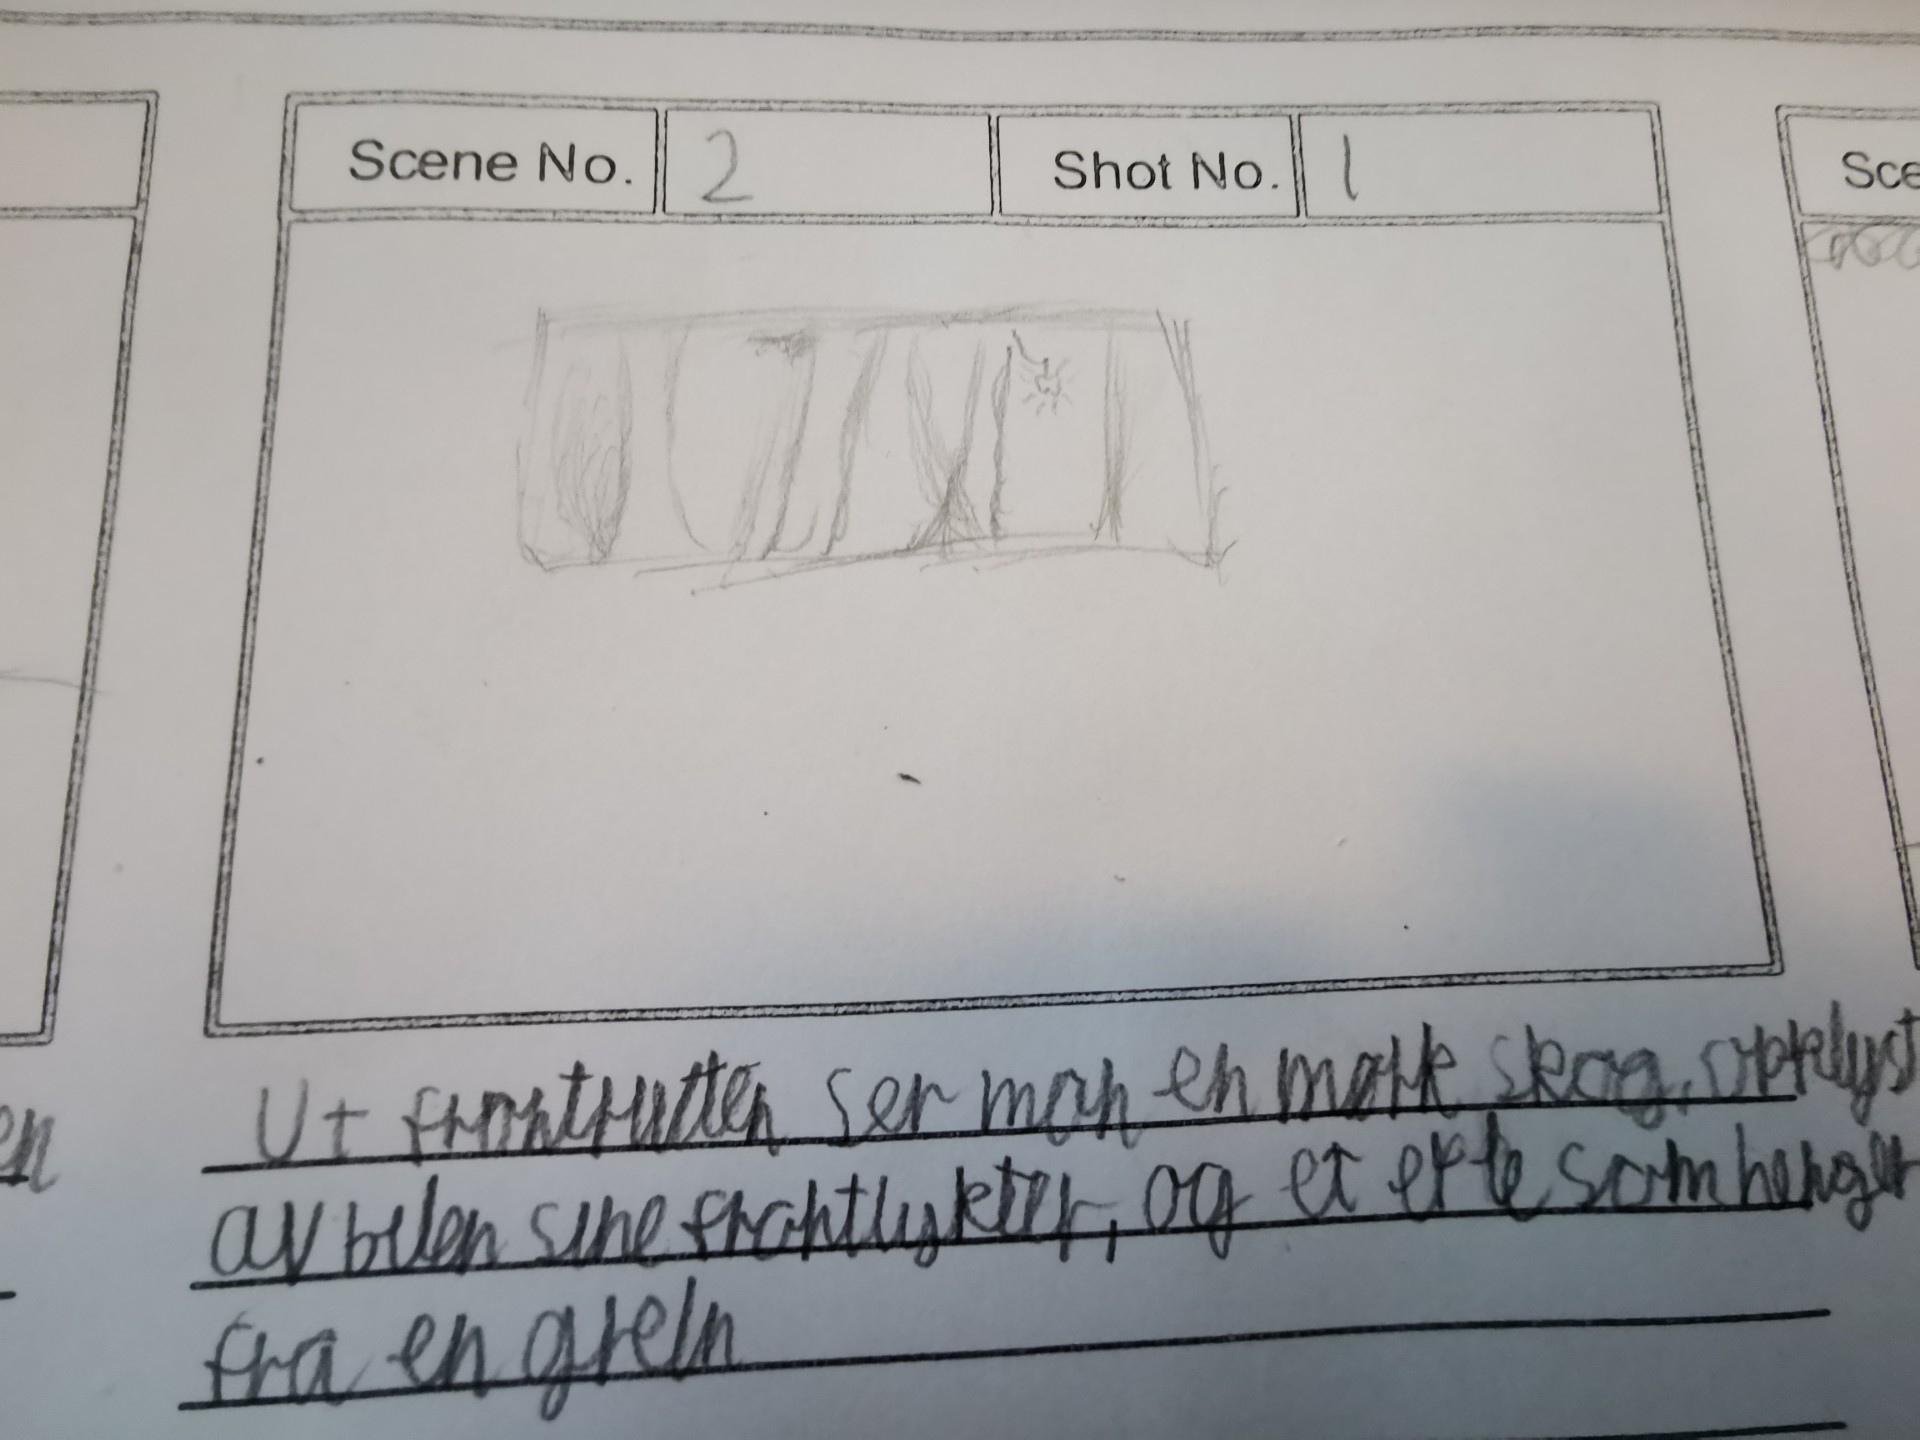 Scene No. 2 Shot No. 1 Sce
Ut frontrutten ser man en mørk skog, opplyst
en
av bilen sine frontlykter, og et eple som henger
fra en grein